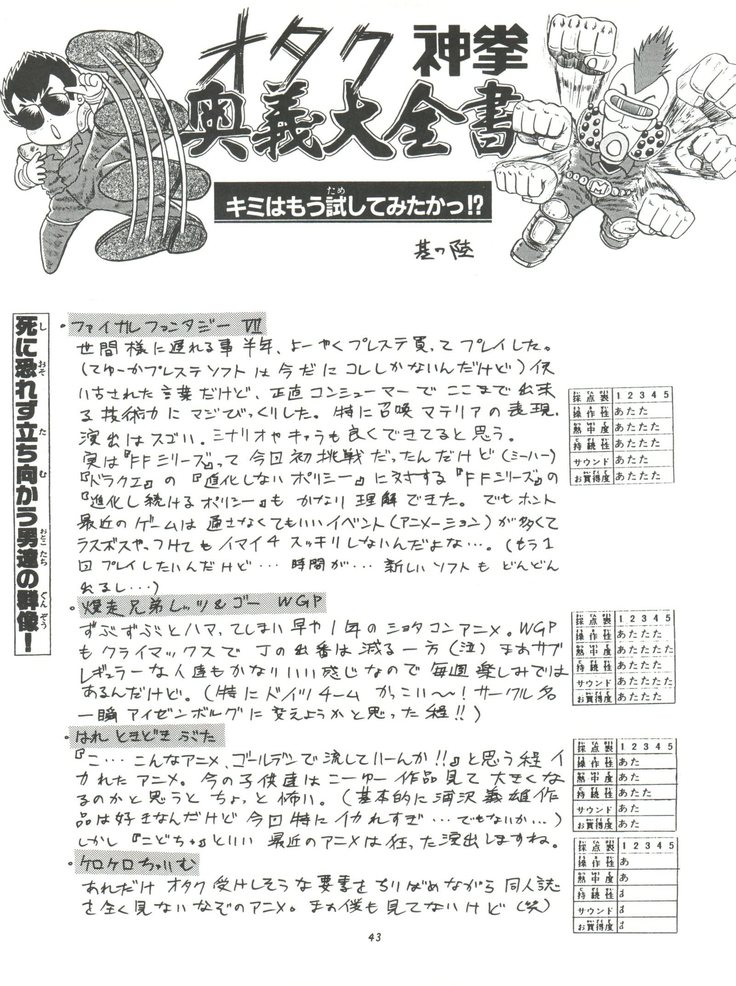 オタク神拳
奥義大全書
キミはもう試してみたかっ!?
其の陸
死に恐れず立ち向かう男達の群像!
・ファイナルファンタジーVII
世間様に遅れる事半年、よーやくプレステ買ってプレイした。
(てゆーかプレステソフトは今だにコレしかないんだけど)使
い古された言葉だけど、正直コンシューマーでここまで出来
る技術力にマジびっくりした。特に召喚マテリアの表現、
演出はスゴい。シナリオやキャラも良くできてると思う。
実は『FFシリーズ』って今回初挑戦だったんだけど(ミーハー)
『ドラクエ』の『進化しないポリシー』に対する『FFシリーズ』の
『進化し続けるポリシー』もかなり理解できた。でもホント
最近のゲームは通さなくてもいいイベント(アニメーション)が多くて
ラスボスやっつけてもイマイチスッキリしないんだよな…。(もう1
回プレイしたいんだけど…時間が…新しいソフトもどんどん
出るし…)
採点表 1 2 3 4 5
操作性 あたた
熱中度 あたたた
持続性 あたたた
サウンド あたた
お買得度 あたたた
・爆走兄弟レッツ&ゴー WGP
ずぶずぶとハマってしまい早や1年のショタコンアニメ。WGP
もクライマックスでJの出番は減る一方(泣)まぁサブ
レギュラーな人達もかなりいい感じなので毎週楽しみでは
あるんだけど。(特にドイツチームかっこい〜!サークル名
一瞬アイゼンボルグに変えようかと思った程!!)
採点表 1 2 3 4 5
操作性 あたたた
熱中度 あたたたた
持続性 あたたた
サウンド あたたたた
お買得度 あたたた
・はれときどきぶた
『こ…こんなアニメ、ゴールデンで流していーんか!!』と思う程イ
カれたアニメ。今の子供達はこーゆー作品見て大きくな
るのかと思うとちょっと怖い。(基本的に浦沢義雄作
品は好きなんだけど今回特にイカれすぎ…でもないか…)
しかし『こどちゃ』といい最近のアニメは狂った演出しますね。
採点表 1 2 3 4 5
操作性 あた
熱中度 あたた
持続性 あたた
サウンド あた
お買得度 あたた
・ケロケロちゃいむ
あれだけオタク受けしそうな要素をちりばめながら同人誌
を全く見ないなぞのアニメ。まぁ僕も見てないけど(笑)
採点表 1 2 3 4 5
操作性 あ
熱中度 あ
持続性
サウンド
お買得度
43